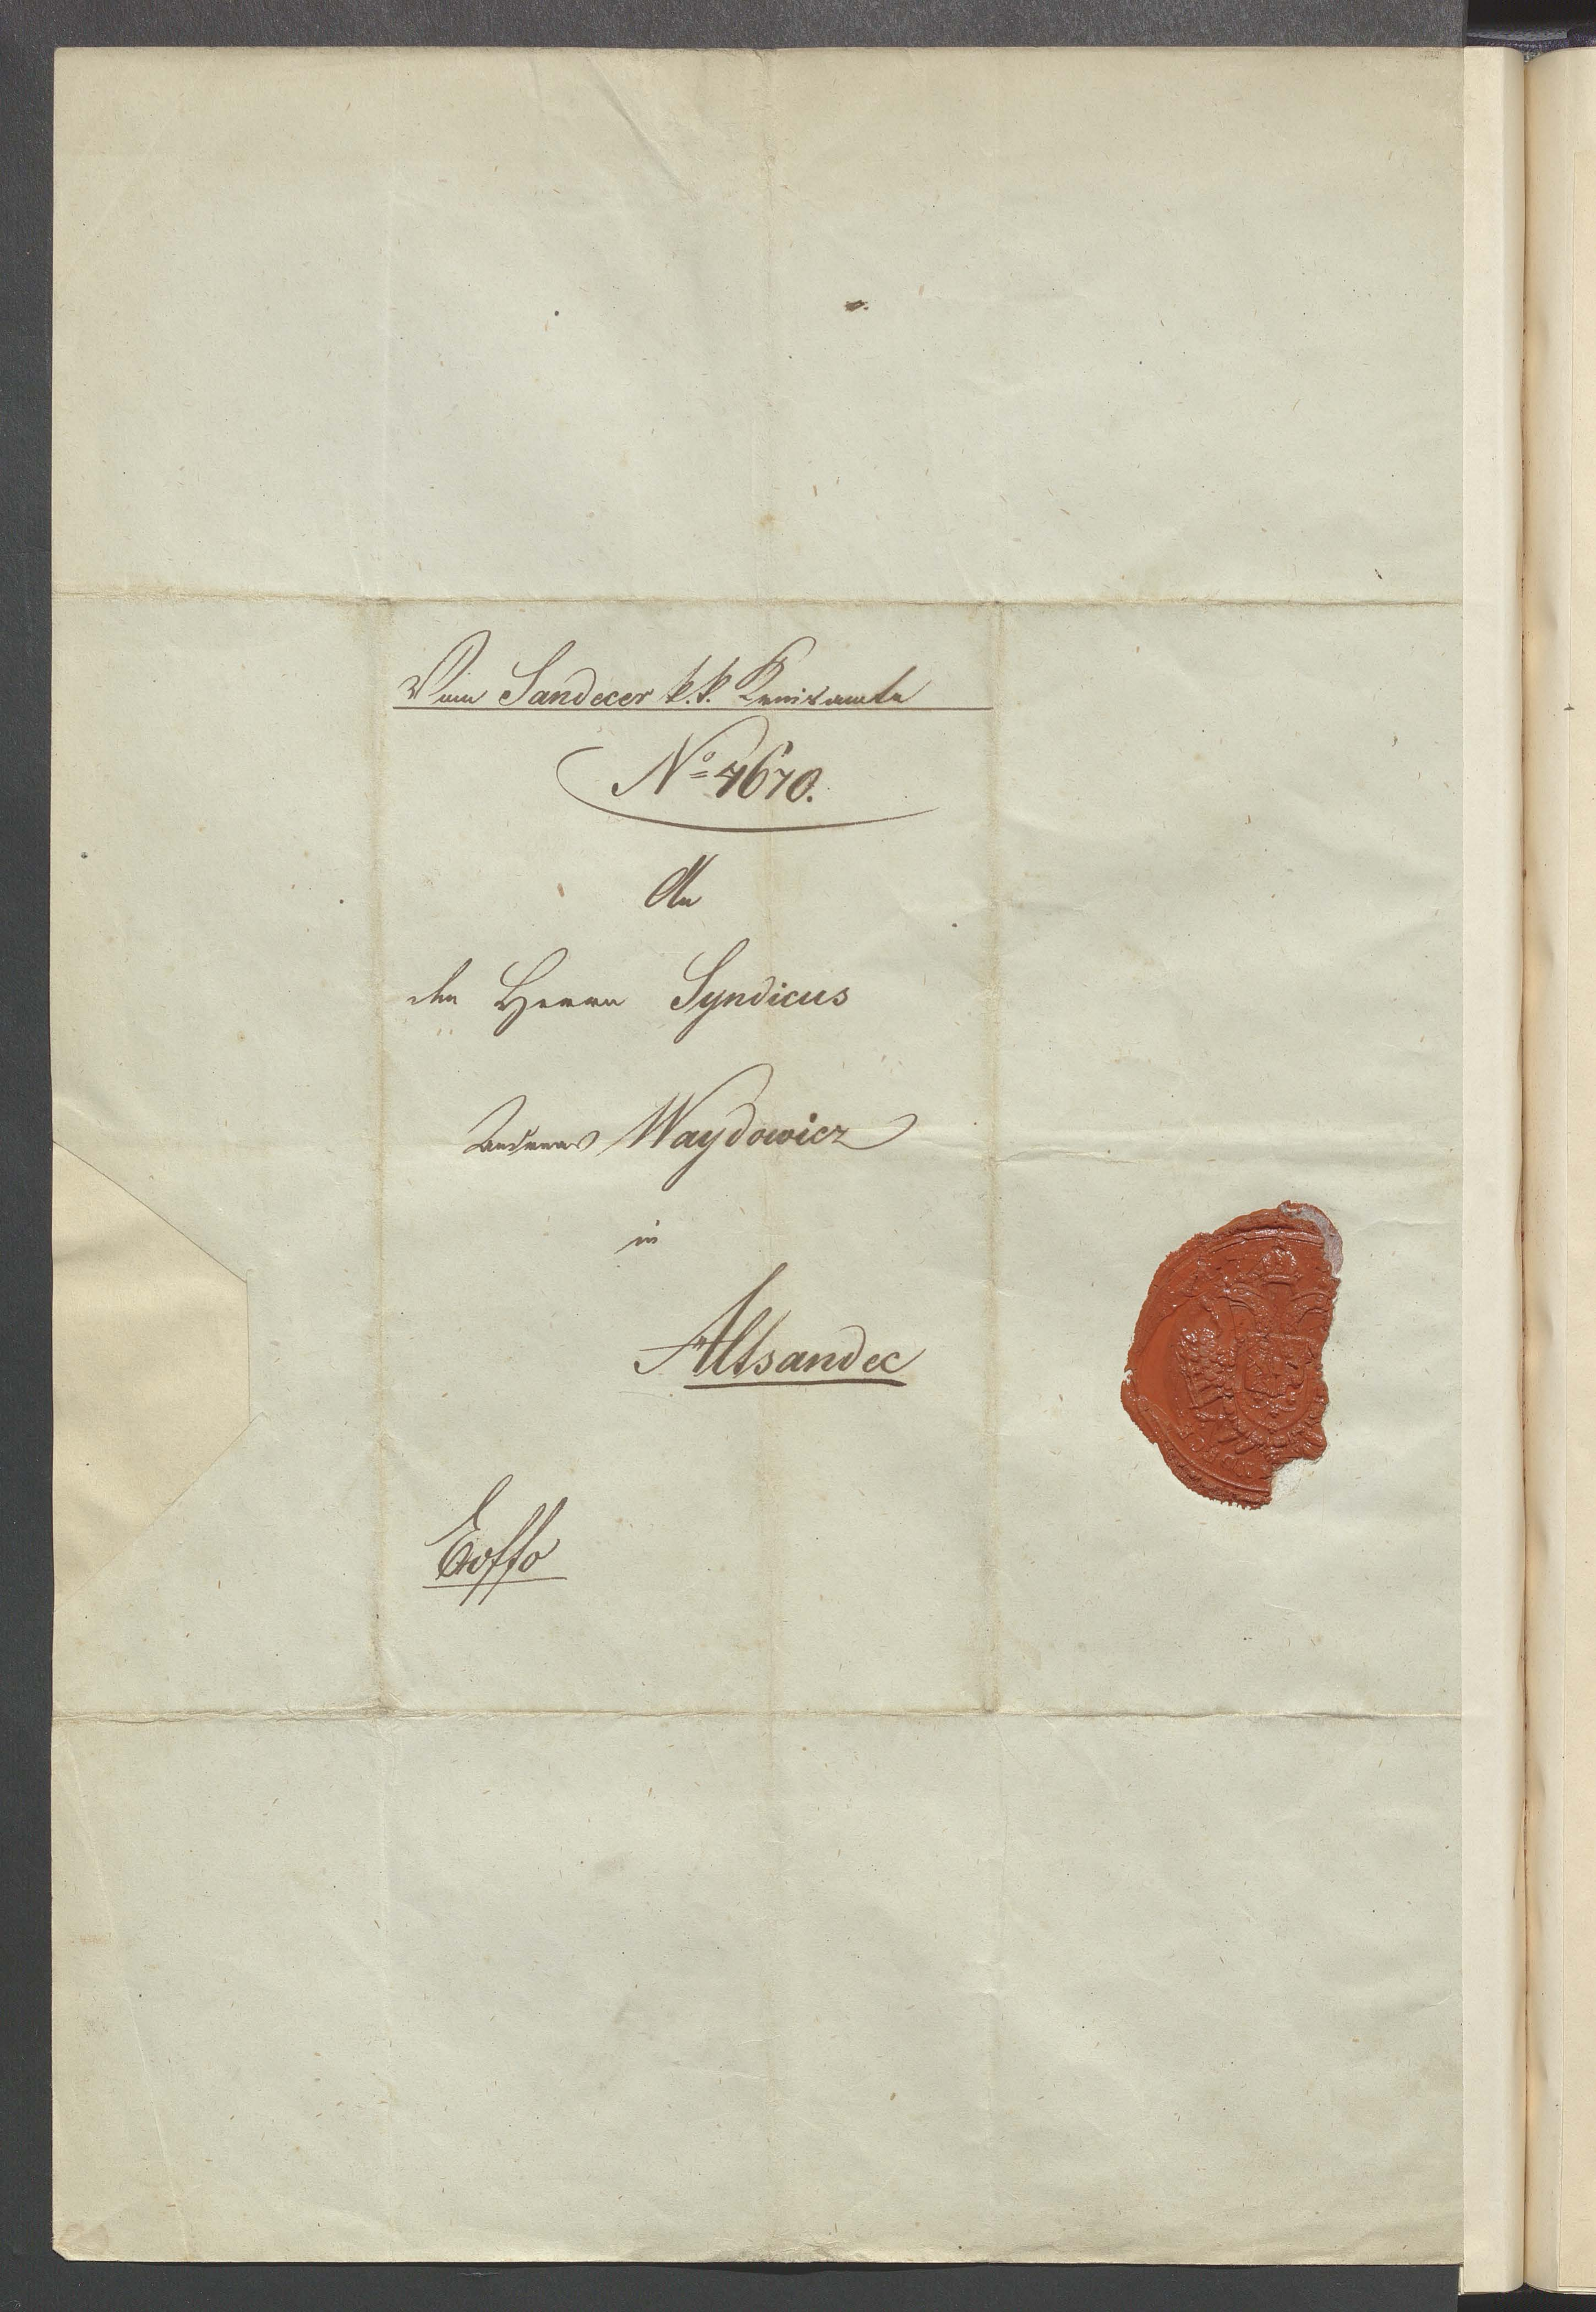 Vom Sandecer k. k. Kreisamte
No 7670.
An
den Herrn Syndicus
Andreas Waydowicz
in
Altsandec
Exoffo